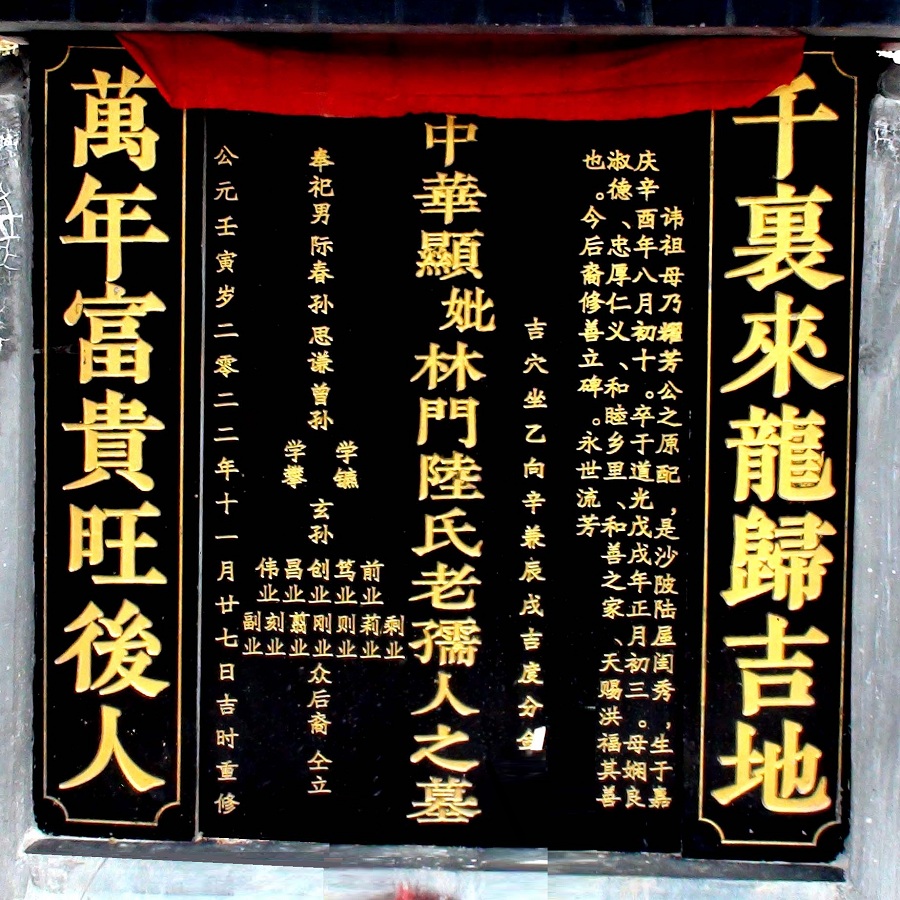 千裏來龍歸吉地
讳祖母乃耀芳公之原配，是沙陂陆屋闺秀，生于嘉
庆辛酉年八月初十。卒于道光戊戌年正月初三。母娴良
淑德、忠厚仁义、和睦乡里、和善之家、天赐洪福其善
也。今后裔修善立碑。永世流芳
吉穴坐乙向辛兼辰戌吉度分金
中華顯妣林門陸氏老孺人之墓
奉祀男际春孙思谦曾孙
学镳
学攀
玄孙
前业
笃业
创业
昌业
伟业
剩业
莉业
则业
刚业
翦业
刻业
副业
众后裔仝立
公元壬寅岁二零二二年十一月廿七日吉时重修
萬年富貴旺後人